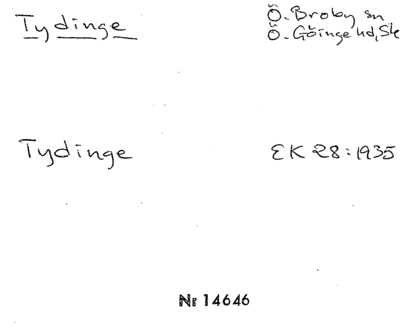 Tydinge Ö. Broby sn
Ö. Göinge hd, Sk
Tydinge EK 28:1935
Nr 14646